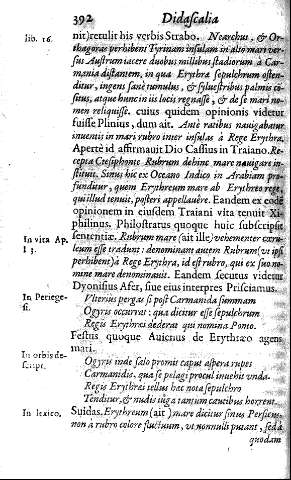 392 Didascalia
lib. 16. nit) retulit his verbis Strabo. Nearchus, & Or-
thagoras perhibent Tyrinam insulam in alto mari ver-
sus Austrum iacere duobus millibus stadiorum à Car-
mania distantem, in qua Erythræ sepulchrum osten-
ditur, ingens sanè tumulus, & siluestribus palmis cō-
situs, atque hunc in iis locis regnasse, & de se mari no-
men reliquisse. cuius quidem opinionis videtur
fuisse Plinius, dum ait. Ante ratibus nauigabatur
inuentis in mari rubro inter insulas à Rege Erythra.
Apertè id affirmauit Dio Cassius in Traiano. Re-
cepta Ctesiphonte Rubrum debinc mare nauigare in-
stituit. Sinus hic ex Oceano Indico in Arabiam pro-
funditur, quem Erythreum mare ab Erythreo rege,
qui illud tenuit, posteri appellauêre. Eandem ex eodē
opinionem in eiusdem Traiani vita tenuit Xi-
philinus. Philostratus quoque huic subscripsit
In vita Ap. sententiæ. Rubrum mare (ait ille) vehementer cæru-
l 3. leum esse tradunt: denominant autem Rubrum (vt ipsi
perhibent) à Rege Erythra, id est rubro, qui ex suo no-
mine mare denominauit. Eandem secutus videtur
Dyonisius Afer, siue eius interpres Priscianus.
In Periege- Vlterius pergas si post Carmanida summam
si. Ogyris occurret: qua dicitur esse sepulchrum
Regis Erythræi dederat qui nomina Ponto.
Festus quoque Auienus de Erythræo agens
mari.
In orbis de- Ogyris inde salo promit caput aspera rupes
script. Carmanidis, qua se pelagi procul inuehit vnda.
Regis Erythræi tellus hæc nota sepulchro
Tenditur, & nudis iuga tantum cautibus horrent.
In lexico. Suidas. Erythreum (ait) mare dicitur sinus Persicus,
non à rubro colore fluctuum, vt nonnulli putant, sed à
quodam